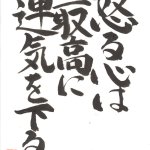 怒る心は
最高に
運気を下る